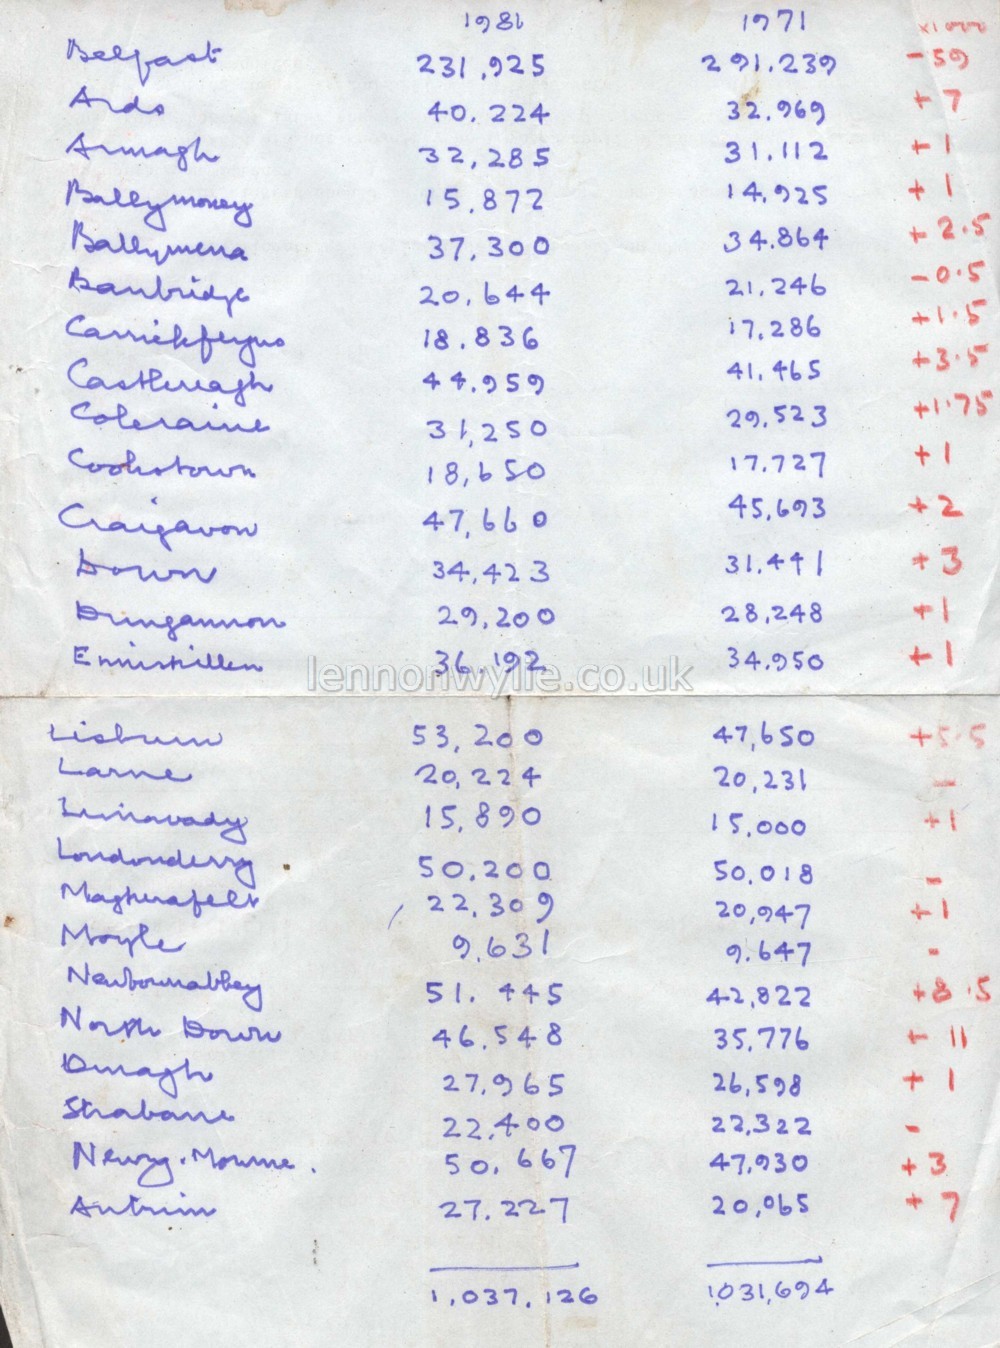 1981 1971 x1000
Belfast 231,925 291,239 -59
Ards 40,224 32,969 +7
Armagh 32,285 31,112 +1
Ballymoney 15,872 14,925 +1
Ballymena 37,300 34,864 +2.5
Banbridge 20,644 21,246 -0.5
Carrickfergus 18,836 17,286 +1.5
Castlereagh 44,959 41,465 +3.5
Coleraine 31,250 29,523 +1.75
Cookstown 18,650 17,727 +1
Craigavon 47,660 45,693 +2
Down 34,423 31,441 +3
Dungannon 29,200 28,248 +1
Enniskillen 36,192 34,950 +1
lennonwylie.co.uk
Lisburn 53,200 47,650 +5.5
Larne 20,224 20,231 -
Limavady 15,890 15,000 +1
Londonderry 50,200 50,018 -
Magherafelt 22,309 20,947 +1
Moyle 9,631 9,647 -
Newtownabbey 51,445 42,822 +8.5
North Down 46,548 35,776 + 11
Omagh 27,965 26,598 +1
Strabane 22,400 22,322 -
Newry. Mourne. 50,667 47,930 +3
Antrim 27,227 20,065 +7
1,037,126 1,031,694